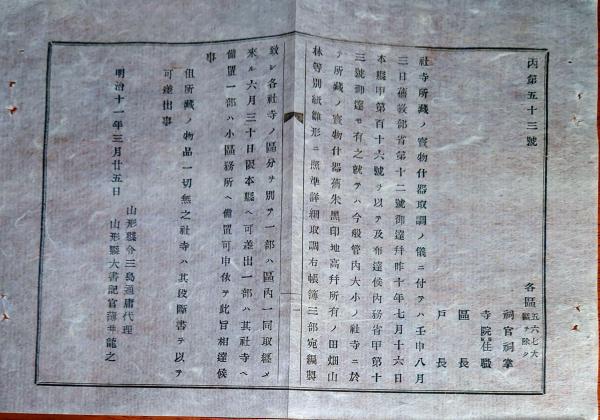 丙第五十三號
各區 五六七大區ヲ除ク
祠官祠掌
寺院住職
區長
戸長
社寺所藏ノ寶物什器取調ノ儀ニ付テハ壬申八月
二日舊敎部省第十二號御達幷昨十年七月十六日
本縣甲第百十六號ヲ以テ及布達候內務省甲第十
三號御達モ有之就テハ今般管內大小ノ社寺ニ於
テ所藏ノ寶物什器舊朱黑印地高幷所有ノ田畑山
林等別紙雛形ニ照準詳細取調右帳簿三部宛編製
致シ各社寺ノ區分ヲ別テ一部ハ區內一同取纏メ
來ル六月三十日限本縣ヘ可差出一部ハ其社寺ヘ
備置一部ハ小區務所ヘ備置可申依テ此旨相達候
事
但所藏ノ物品一切無之社寺ハ其段斷書ヲ以テ
可差出事
明治十一年三月廿五日
山形縣令三島通庸代理
山形縣大書記官薄井龍之